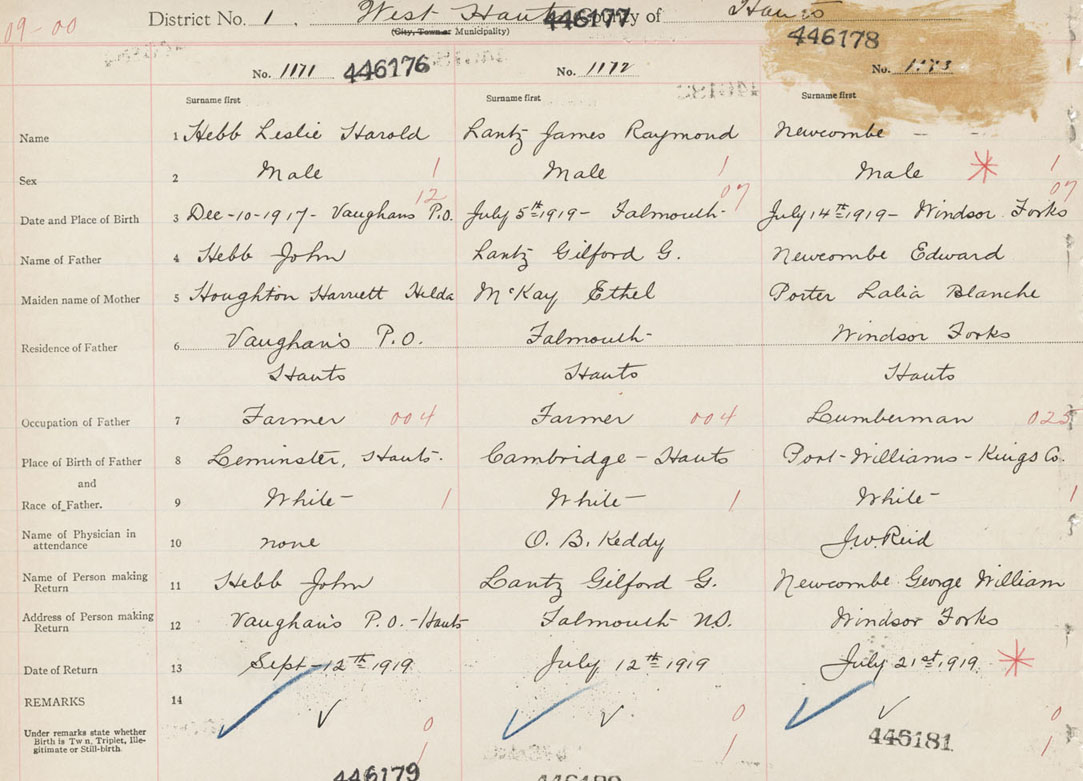 09-00
District No. 1. West Hants 446177 County of Hants
(City, Town or Municipality)
446178
No. 1171 446176 No. 1172 No. 1173
Surname first Surname first Surname first
Name 1 Hebb Leslie Harold Lantz James Raymond Newcombe
Sex 2 Male 1 Male 1 Male * 1
12 07 07
Date and Place of Birth 3 Dec-10-1917- Vaughans P.O. July 5th 1919- Falmouth- July 14th 1919- Windsor Forks
Name of Father 4 Hebb John Lantz Gilford G. Newcombe Edward
Maiden name of Mother 5 Houghton Harriett Hilda McKay Ethel Porter Lalia Blanche
Residence of Father 6 Vaughan's P.O. Falmouth- Windsor Forks
Hants Hants Hants
Occupation of Father 7 Farmer 004 Farmer 004 Lumberman 025
Place of Birth of Father 8 Leminster, Hants. Cambridge - Hants Port-Williams - Kings Co.
and
Race of Father. 9 White- 1 White- 1 White- 1
Name of Physician in attendance 10 none O. B. Keddy J.W. Reid
Name of Person making Return 11 Hebb John Lantz Gilford G. Newcombe George William
Address of Person making Return 12 Vaughan's P.O.-Hants Falmouth N.S. Windsor Forks
Date of Return 13 Sept-12th 1919 July 12th 1919 July 21st 1919 *
REMARKS 14
Under remarks state whether Birth is Twin, Triplet, Illegitimate or Still-birth. 0 0 0
1 1 446181 1
446179